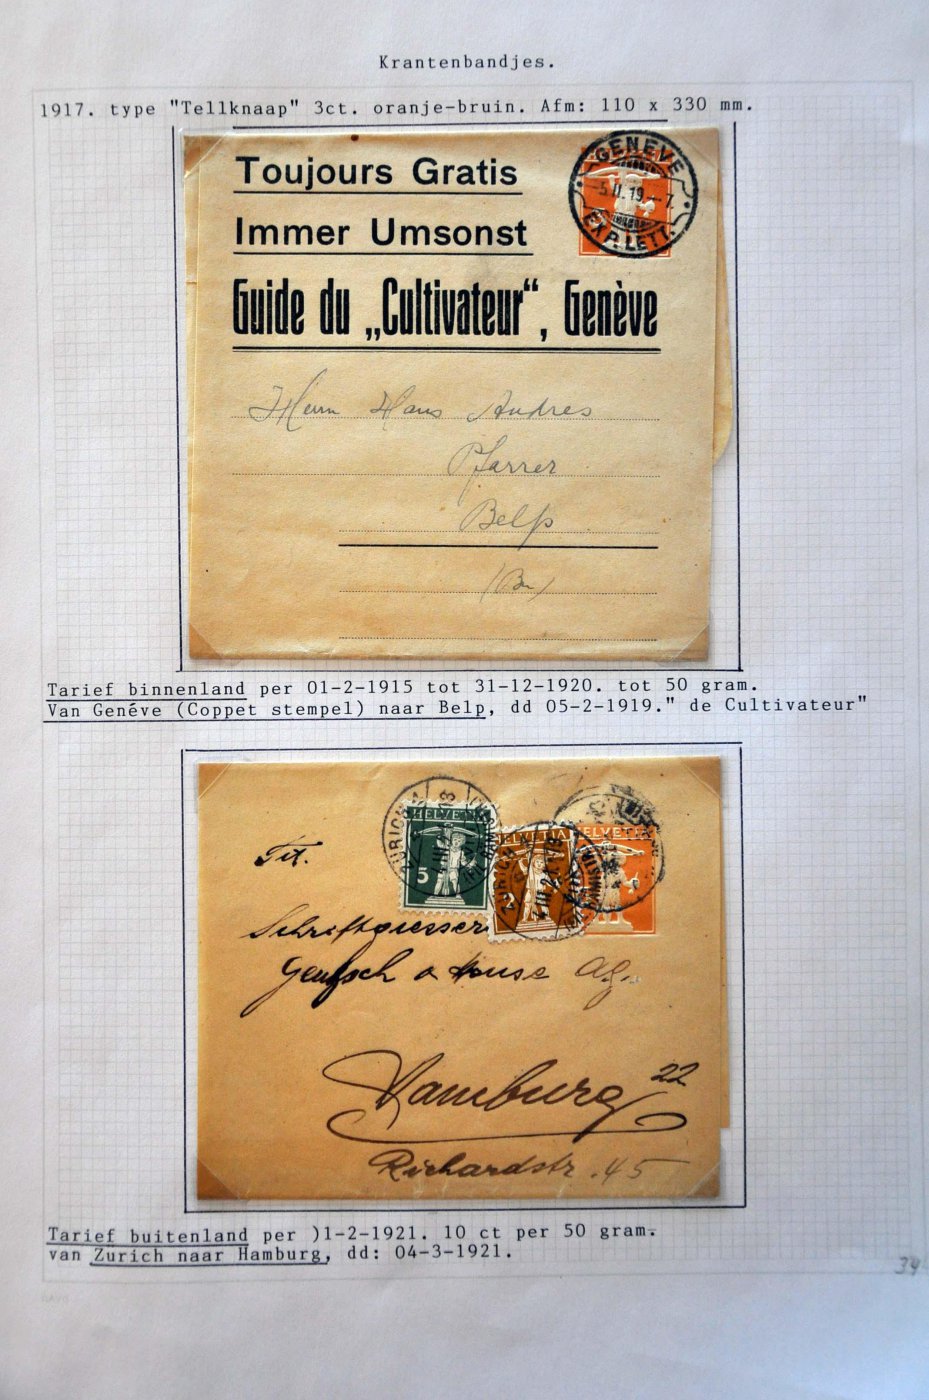 Krantenbandjes.
1917. type "Tellknaap" 3ct. oranje-bruin. Afm: 110 x 330 mm.
Toujours Gratis
Immer Umsonst
Guide du „Cultivateur“, Genève
GENEVE
-5.II.19.-7.
EXP. LETT.
Herrn Hans Andres
Pfarrer
Belp
(Bn)
Tarief binnenland per 01-2-1915 tot 31-12-1920. tot 50 gram.
Van Genéve (Coppet stempel) naar Belp, dd 05-2-1919." de Cultivateur"
HELVETIA
5
HELVETIA
2
HELVETIA
ZÜRICH
ZÜRICH
Tit.
Schriftgiesserei
Genzsch & Heyse A.G.
Hamburg 22
Richardstr. 45
Tarief buitenland per )1-2-1921. 10 ct per 50 gram.
van Zürich naar Hamburg, dd: 04-3-1921.
34